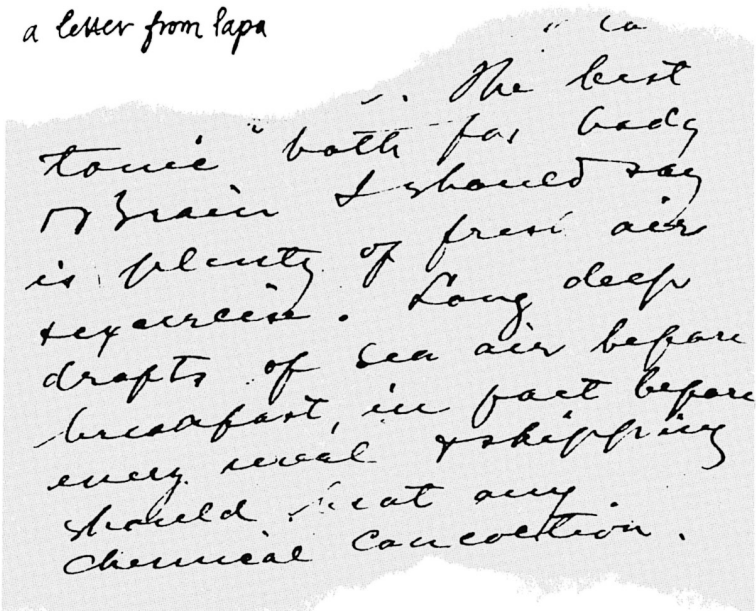 a letter from Papa
The best
tonic both for body
& Brain I should say
is plenty of fresh air
& exercise. Long deep
drafts of sea air before
breakfast, in fact before
every meal & skipping
should beat any
chemical concoction.